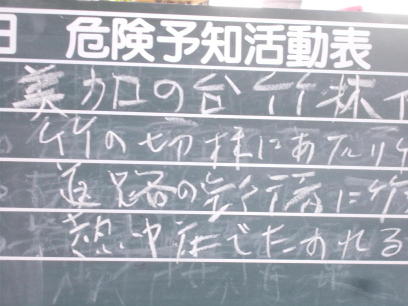 日 危険予知活動表
美加の台竹株
竹の切株にあたり
道路の
熱中症でたおれる